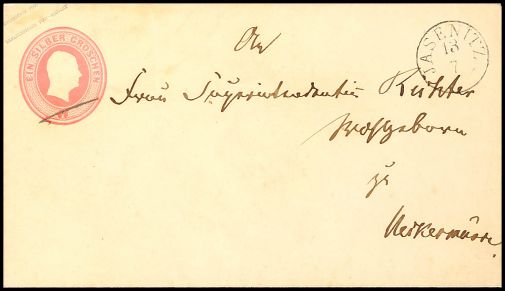 EIN SILBER GROSCHEN
JASENITZ
13
7
An
Frau Superintendentin Richter
Wohlgeborn
zu
Ueckermünde.